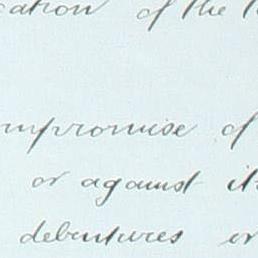 cation of the
mpromise of
or against its
debentures or